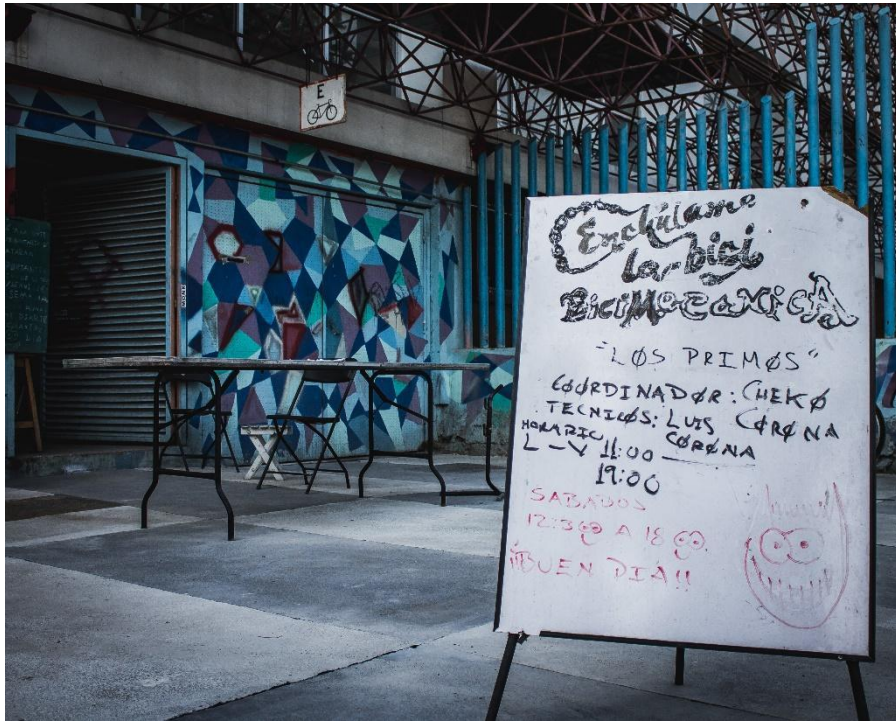 E
Enchúlame
la bici
BiciMecanica
"LOS PRIMOS"
COORDINADOR: CHEKO
TECNICOS: LUIS CORONA
HORARIO CORONA
L - V 11:00
19:00
SABADOS
12:300 A 18 00.
¡¡BUEN DIA!!